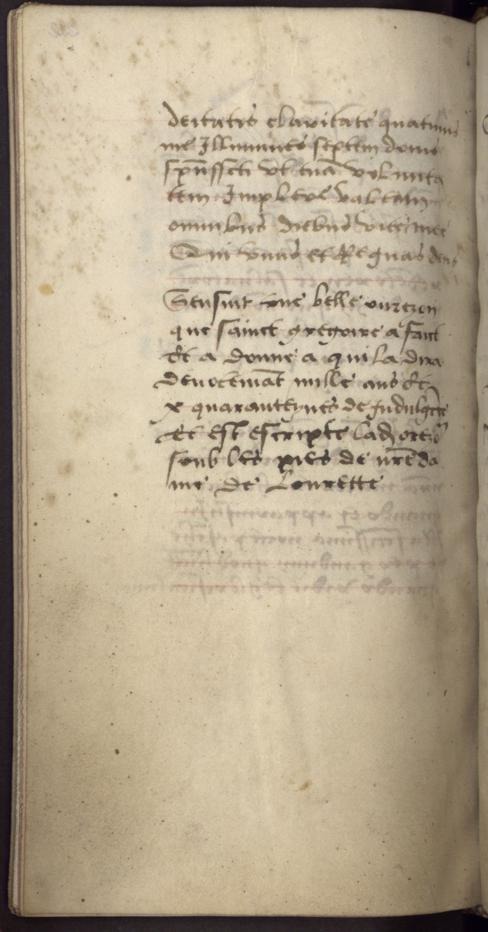 deitatis claritate quatinus
me Illumines septem donis
spūsscti vt tuā volunta
tem Implere valeam
omnibus diebus vite mee
Qui viuis et Regnas deus
Sensuit vne belle oureson
que sainct gregoire a faict
Et a donne a qui la dira
deuotemāt mille ans et
x quarantaynes de Indulgēce
Et est escripte lad oreisō
soub les pies de nr̄e da
me de Lourette